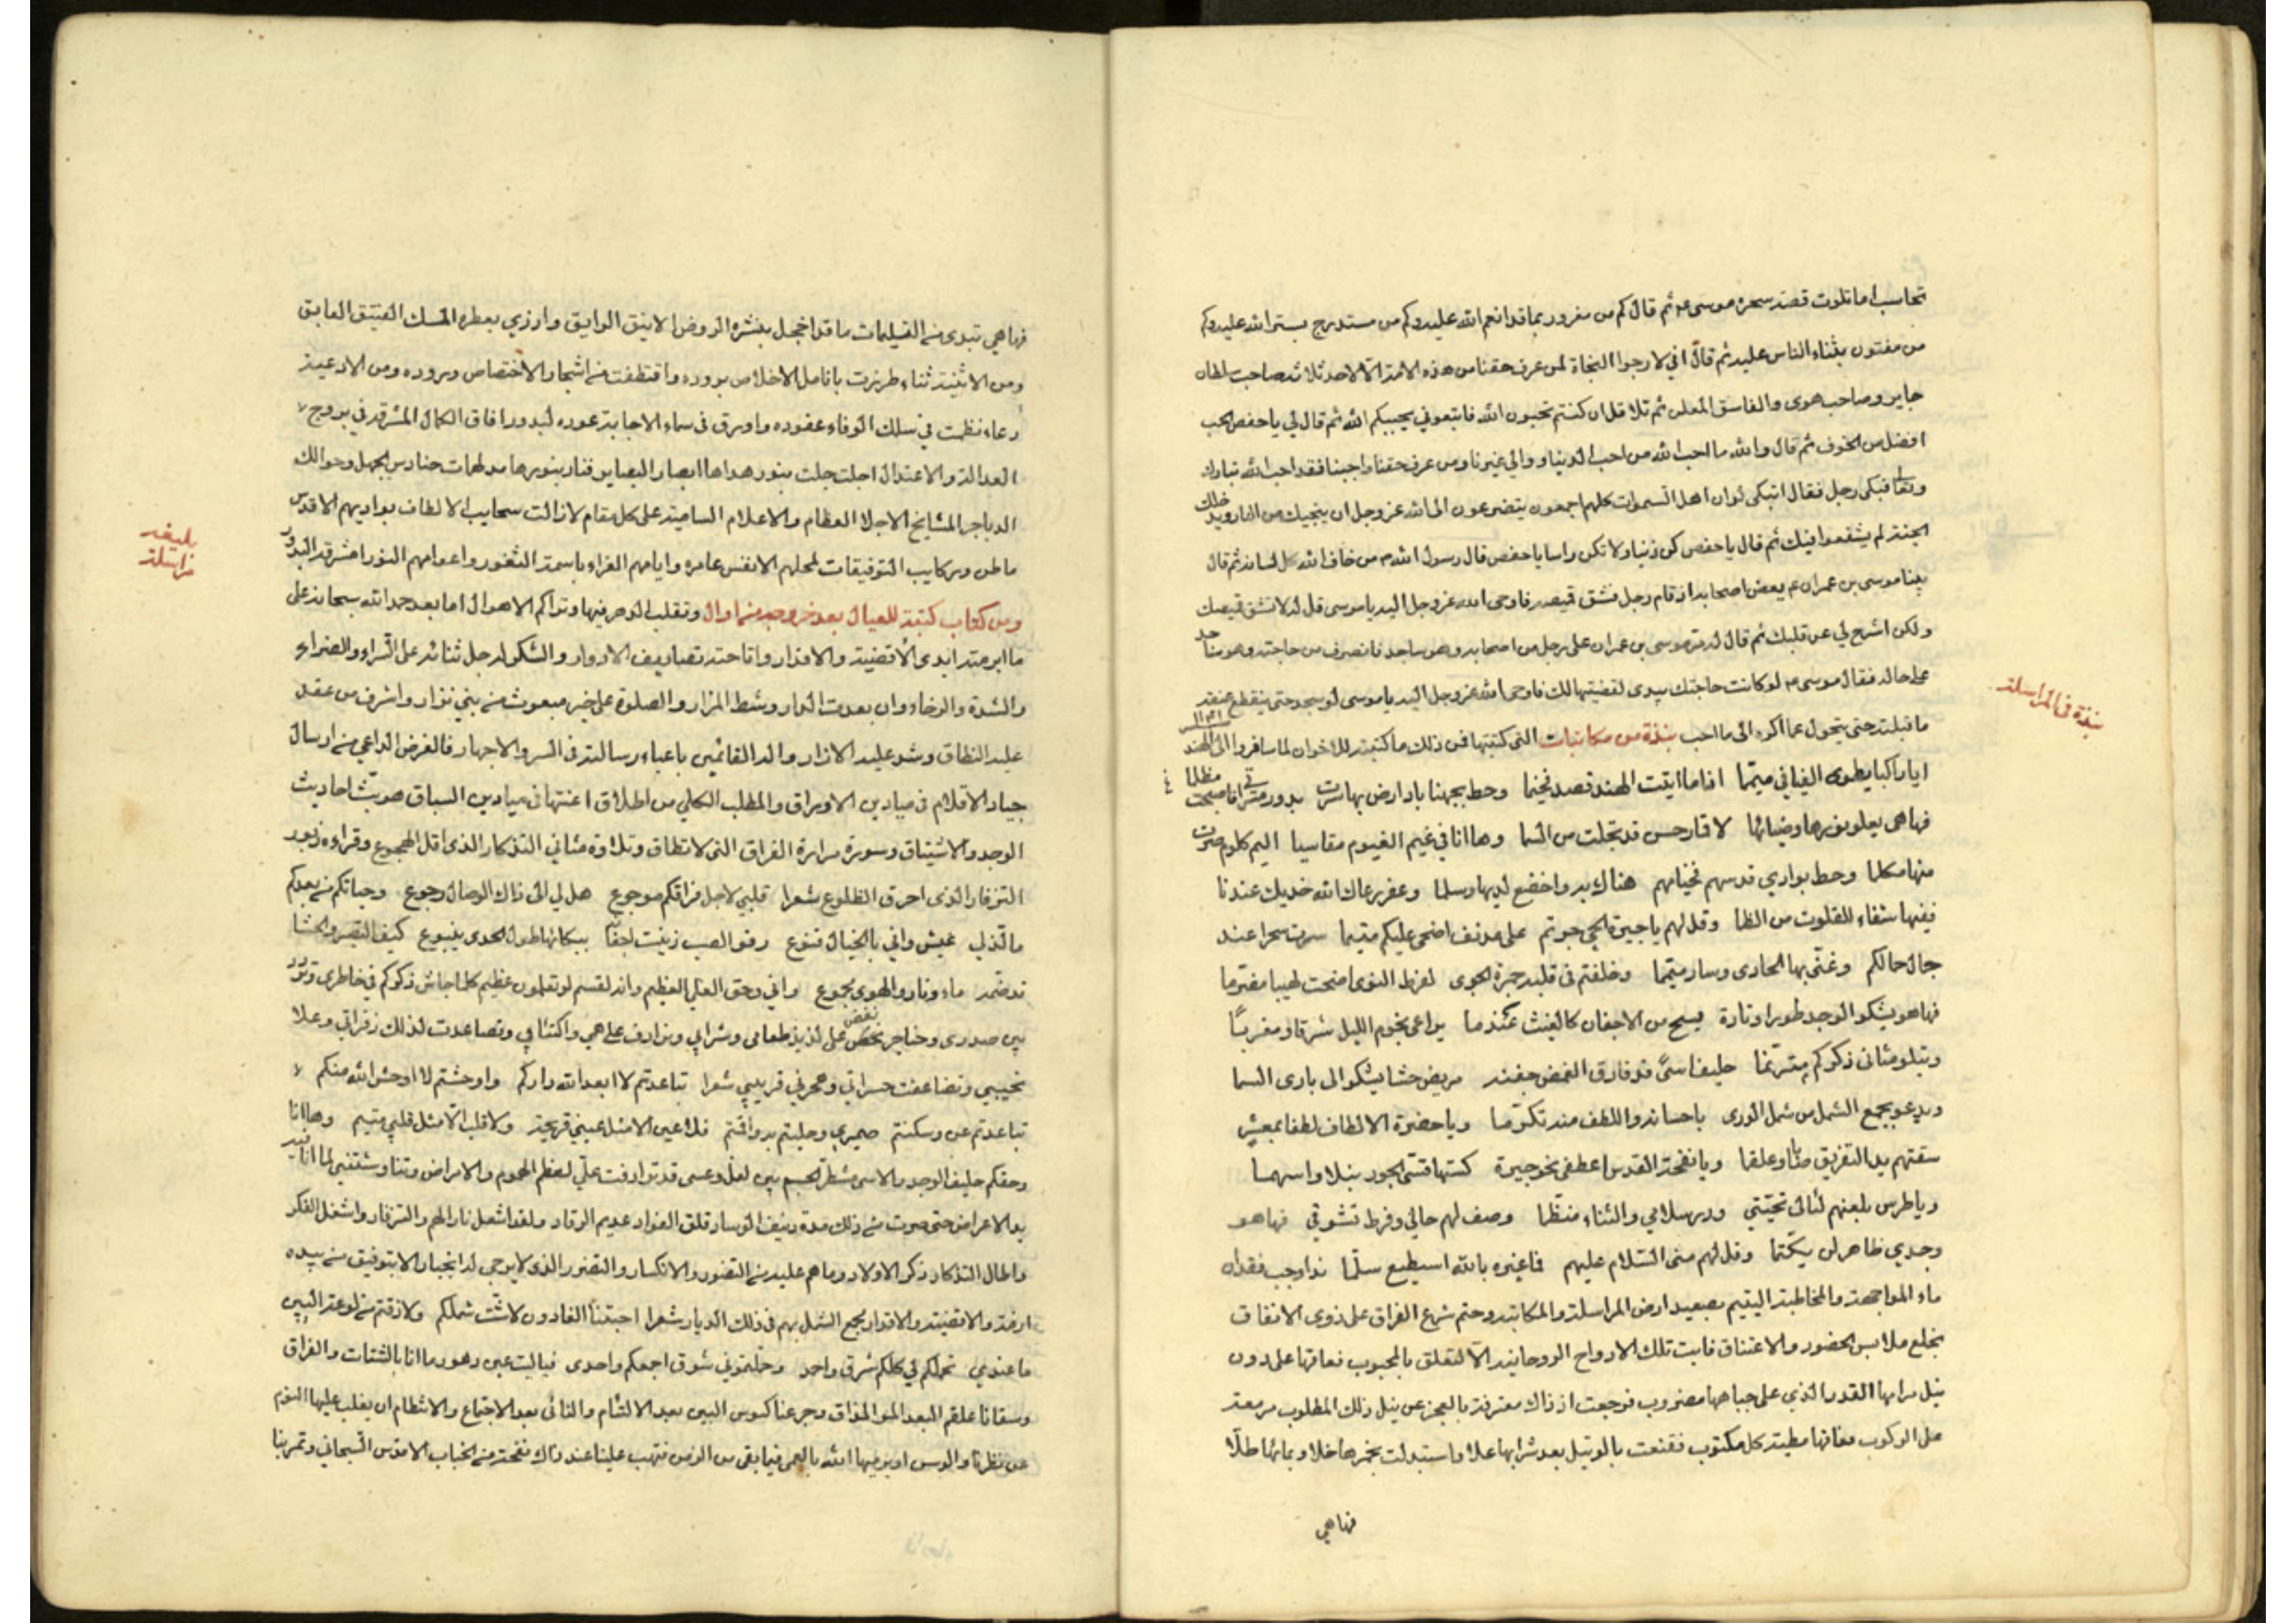 تحاسب اما تلوت قصة سحرة موسى ع م ثم قال كم من مغرور بما قد انعم الله عليه وكم من مستدرج بستر الله عليه وكم
من مفتون بثناء الناس عليه ثم قال اني لارجوا النجاة لمن عرف حقنا من هذه الامة الا لاحد ثلاثه صاحب سلطان
جاير وصاحب هوى والفاسق المعلن ثم تلا قل ان كنتم تحبون الله فاتبعوني يحببكم الله ثم قال لي يا حفص الحب
افضل من الخوف ثم قال والله ما احب الله من احب الدنيا ووالى غيرنا ومن عرف حقنا واحبنا فقد احب الله تبارك
وتعا فبكى رجل فقال اتبكى لو ان اهل السموات كلهم اجمعون يتضرعون الى الله عز وجل ان ينجيك من النار ويدخلك
الجنة لم يشفعوا فيك ثم قال يا حفص كن ذنبا ولا تكن راسا يا حفص قال رسول الله ص من خاف الله كل لسانه ثم قال
بينا موسى بن عمران ع م يعض اصحابه اذ قام رجل فشق قميصه فاوحى الله عز وجل اليه يا موسى قل له لا تشق قميصك
ولكن اشرح لي عن قلبك ثم قال له مر موسى بن عمران على رجل من اصحابه وهو ساجد فانصرف من حاجته وهو ساجد
على حاله فقال موسى ع م لو كانت حاجتك بيدى لقضيتها لك فاوحى الله عز وجل اليه يا موسى لو سجد حتى ينقطع عنقه
ما قبلته حتى يتحول عما اكره الى ما احب نبذة من مكاتبات التى كتبتها فمن ذلك ما كتبته للاخوان لما سافروا الى الهند
نبذة فى المراسلة
ايا راكبا يطوى الفيافي ميتما اذا ما اتيت الهند قصد مخيما وحط بجهنا باد ارض بها سرت بدور
فها هي يعلو نورها وضيائها لاقمار حسن قد تجلت من السما وها انا في غيم الغيوم مقاسيا اليم كلوم صرت
منها مكلما وحط بوادي قدسهم فخيامهم هناك بدوا خضع لديها وسلما وعفر رعاك الله خديك عندنا
ففيها شفاء للقلوب من الظما وقل لهم يا جيرة الحي جرتم على مدنف اضحى عليكم متيما سرت سحرا عند
جال حالكم وغنى بها الحادى وسار ميتما وخلفتم فى قلبه جمرة الجوى لفرط النوى اضحت لهيبا مضرما
فها هو يشكو الوجد طورا وتارة يسح من الاجفان كالغيث عندما يراعى نجوم الليل شرقا ومغربا
ويتلو مثانى ذكركم مترنما حليف اسى قد فارق الغمض جفنه مريض حشا يشكو الى بارى السما
ويدعو بجمع الشمل من شمل الورى باحسانه واللطف منه تكرما ويا حضرة الالطاف لطفا بمعشر
سقتهم يد التفريق صابا وعلقما ويا نفحة القدس اعطفى نحو جيرة كستها قسى الجور نبلا واسهما
ويا طرس بلغهم لئالى تحيتي ودر سلامي والثناء منظما وصف لهم حالي وفرط تشوقي فها هو
وجدي ظاهر لن يكتما وقل لهم منى السلام عليهم فاغيره بالله اسطيع سلما نداوجب فقدان
ماء المواجهة والمخاطبة اليتيم بصعيد ارض المراسلة والمكاتبه وحتم شرع الفراق على ذوى الاتفاق
بخلع ملابس الحضور والاعتناق فابت تلك الارواح الروحانيه الا لتعلق بالمحبوب فعاقها على دون
نيل مرامها القدر الذي على جباهها مضروب فرجعت اذ ذاك معترفة بالعجز عن نيل ذلك المطلوب مزمعة
على الركوب معانها مطية كل مكتوب فقنعت بالوتيل بعد شرابها علا واستبدلت بخمرها خلا وبمائها طلا
فها هي
فها هي تبدى من التسليمات ما قد اخجل بنشره الروض الانيق الوايق وارزي بعطره المسك الفتيق العابق
ومن الاثنية ثناء طرزت بانامل الاخلاص بروده واقتطفت من اشجار الاختصاص وروده ومن الادعية
دعاء نظمت في سلك الوفاء عقوده واورق فى سماء الاجابة عوده لبدور افاق الكمال المشرقة في بروج
العدالة والاعتدال اجلت جلت بنور هداها ابصار البصاير فنار بنورها مدلهمات حنادس الجهل وحوالك
الدياجر المشايخ الاجلا العظام والاعلام السامية على كل مقام لا زالت سحايب الالطاف بواديهم الاقدس
ماطرة وركايب التوفيقات لمحلهم الانفس عامره وايامهم الغراء باسمة الثغور واعوامهم النورا مشرقة البدور
بليغه مراسلة
ومن كتاب كتبته للعيال بعد خروجه من اوال وتقلب الدهر فيها وتراكم الاهوال اما بعد حمد الله سبحانه على
ما ابرمته ايدى الأقضية والاقدار واتاحته تصاريف الادوار والشكر له جل ثنائه على السراء والضراء
والشدة والرخاء وان بعدت الدار وشط المزار والصلوة على خير مبعوث من بني نزار واشرف من عقد
عليه النطاق وشد عليه الازار واله القائمين باعباء رسالته في السر والاجهار فالغرض الداعي من ارسال
جياد الاقلام في ميادين الاوراق والمطلب الكلي من اطلاق اعنتها في ميادين السباق هو بث احاديث
الوجد والاشتياق وسورة مرارة الفراق التى لا تطاق وتلاوة مثاني التذكار الذى اقل الهجوع وقراءة زبور
التزفار الذى احرق الظلوع شعرا قلبي لاجل فراقكم موجوع هل لي الى ذاك الوصال رجوع وحياتكم من بعدكم
ما لذ لي عيش واني بالخيال قنوع كيف التصبر والحشا
ماء ونار والهوى مجموع واني وحق العلي العظيم وانه لقسم لو تعلمون عظيم كلما جاش ذكركم في خاطرى وتردد
بين صدرى وحناجر نغص على لذيذ طعامى وشرابي وترادف على همي واكتئابي وتصاعدت لذلك زفراتي وعلا
نحيبي وتضاعفت حسراتي وهجرني قريبي شعرا تباعدتم لا ابعد الله داركم واوحشتم لا اوحش الله منكم
تباعدتم عن وسكنتم ضميري وحليتم به واقمتم فلا عين الا مثل عيني قريحة ولا قلب الا مثل قلبي متيم وها انا
وحقكم حليف الوجد والاسى مشطر الجسم بين لعل وعسى قد ترادفت علي لعظم الهموم والامراض وتناوشتني
يد الاعراض حتى صرت من ذلك مدة دنيف الوساد قلق الفؤاد عديم الرقاد ولقد اشعل نار الهم والتزفار واشغل الفكر
واطال التذكار ذكر الاولاد وما هم عليه من التضور والانكسار والتضرر الذى لا يرجى له انجبار الا بتوفيق من بيده
ازمة الاقضية والاقدار بجمع الشمل بهم فى ذلك الديار شعرا احبتنا الغادون لا شتت شملكم ولا ذقتم من لوعة البين
ما عندي تحملكم لي كلكم شوق واحد وحملتموني شوق اجمعكم واحدى فيا ليت عين دهورما انا بالشتات والفراق
وسقانا علقم البعد المر المذاق وجرعنا كئوس البين بعد الالتئام والنائى بعد الاجتماع والانتظام ان يغلب عليها النوم
عن نظرنا والوسن او يرميها الله بالعمى فيما بقي من الزمن فتهب علينا عند ذاك نفحة من الجناب الاقدس السبحاني وتمر بنا